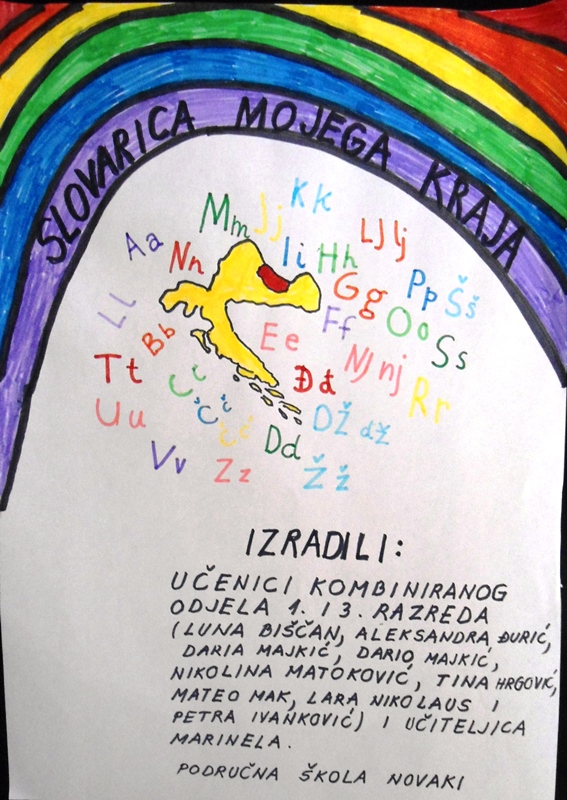 SLOVARICA MOJEGA KRAJA
Kk
Mm Jj LJ lj
Aa Ii Hh
Nn Gg Pp Šš
Ll Ff Oo
Bb Ee Ss
Tt NJ nj
Cc Đđ Rr
Uu Čč DŽ dž
Ćć Dd
Vv Zz Žž
IZRADILI:
UČENICI KOMBINIRANOG
ODJELA 1. I 3. RAZREDA
(LUNA BIŠČAN, ALEKSANDRA ĐURIĆ,
DARIA MAJKIĆ, DARIO MAJKIĆ,
NIKOLINA MATOKOVIĆ, TINA HRGOVIĆ,
MATEO MAK, LARA NIKOLAUS I
PETRA IVANKOVIĆ) I UČITELJICA
MARINELA.
PODRUČNA ŠKOLA NOVAKI